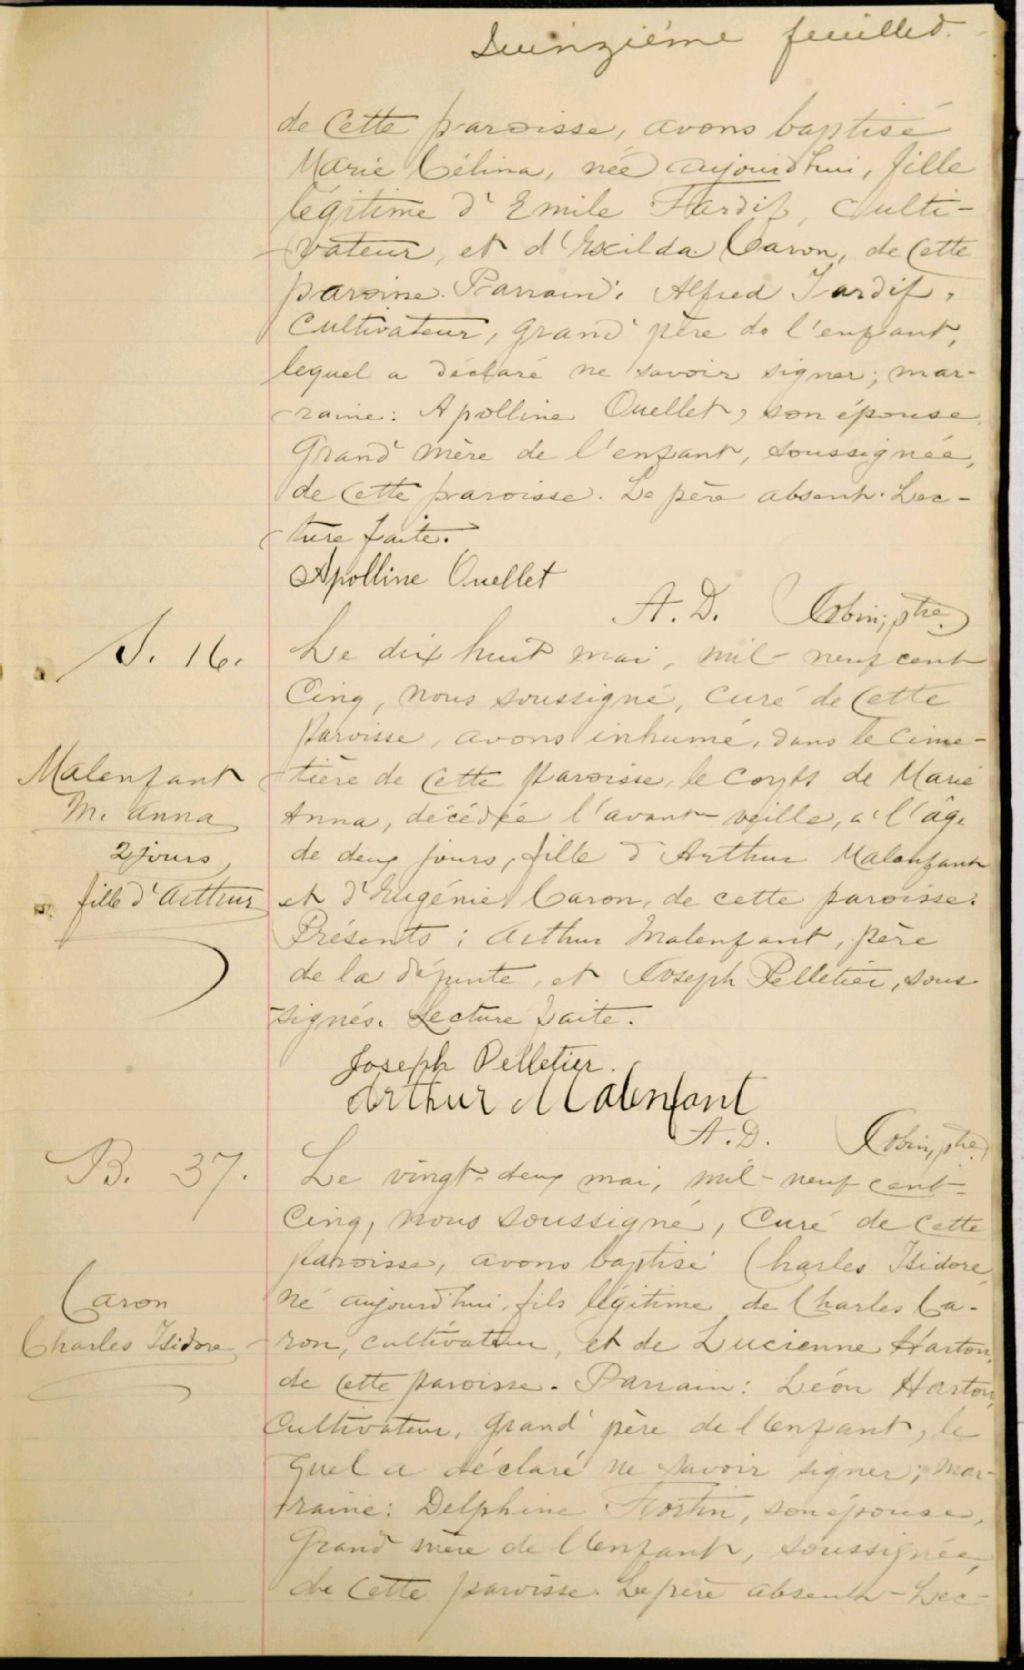 Quinzième feuillet.
de cette paroisse, avons baptisé
Marie Célina, née aujourd'hui, fille
légitime d'Emile Tardif, culti-
vateur, et d'Exilda Caron, de cette
paroisse. Parrain: Alfred Tardif,
cultivateur, grand'père de l'enfant,
lequel a déclaré ne savoir signer; mar-
raine: Apolline Ouellet, son épouse,
grand'mère de l'enfant, soussignée,
de cette paroisse. Le père absent. Lec-
ture faite.
Apolline Ouellet
A. D. Tobin, ptre.
S. 16.
Malenfant
M. Anna
2 jours
fille d'Arthur
Le dix huit mai, mil-neuf cent
cinq, nous soussigné, curé de cette
paroisse, avons inhumé, dans le cime-
tière de cette paroisse, le corps de Marie
Anna, décédée l'avant-veille, à l'âge
de deux jours, fille d'Arthur Malenfant
et d'Eugénie Caron, de cette paroisse.
Présents: Arthur Malenfant, père
de la défunte, et Joseph Pelletier, sous-
signés. Lecture faite.
Joseph Pelletier.
Arthur Malenfant
A. D. Tobin, ptre
B. 37.
Caron
Charles Isidore
Le vingt-deux mai, mil-neuf cent-
cinq, nous soussigné, curé de cette
paroisse, avons baptisé Charles Isidore,
né aujourd'hui, fils légitime de Charles Ca-
ron, cultivateur, et de Lucienne Harton,
de cette paroisse. Parrain: Léon Harton,
cultivateur, grand'père de l'enfant, le
quel a déclaré ne savoir signer; mar-
raine: Delphine Fortin, son épouse,
grand'mère de l'enfant, soussignée,
de cette paroisse. Le père absent. Lec-